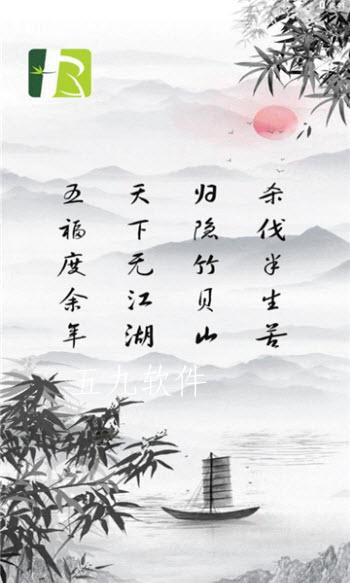 杀伐半生苦
归隐竹贝山
天下无江湖
五福度余年
五九软件